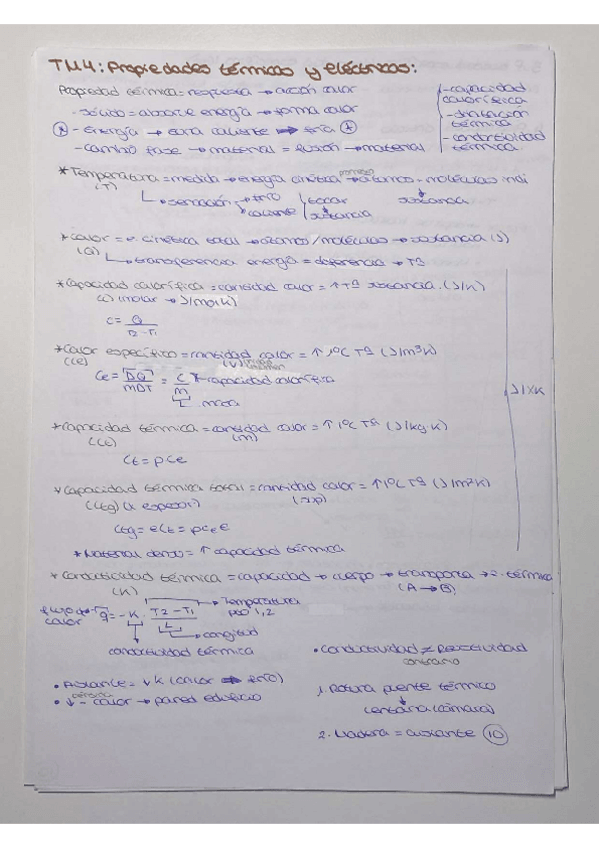 TM4: Propiedades térmicas y eléctricas:
Propiedad térmica = respuesta → acción calor
- sólido = absorve energía → forma calor
- Energía → cara caliente → fría
- cambio fase → material = fusión → material
- capacidad calorífica
- dilatación térmica
- conductividad térmica
* Temperatura = medida → energía cinética promedio → átomos - moléculas indi
(T)
sensación → frío
caliente
tocar
sustancia
sustancia
* Calor = e. cinética total → átomos/moléculas → sustancia (J)
(Q)
transferencia energía = diferencia → Tª
* Capacidad calorífica = cantidad calor = ↑ Tª sustancia. (J/K)
(C) (molar → J/mol K)
C = Q / T2 - T1
* Calor específico = cantidad calor = ↑ 1ºC Tª (J/m³K)
(Ce) (V)
Ce = DQ / mDT = C / m → capacidad calorífica
masa
J/xK
* Capacidad térmica = cantidad calor = ↑ 1ºC Tª (J/kg K)
(Ct) (m)
Ct = ρCe
* Capacidad térmica total = cantidad calor = ↑ 1ºC Tª (J/m²K)
(Ctg) (x espesor) (sup)
Ctg = eCt = ρCe e
* Material denso = ↑ capacidad térmica
* Conductividad térmica = capacidad → cuerpo → transporta → e. térmica
(K) (A → B)
flujo de calor
q = -K · T2 - T1 / L
Temperatura
pto 1,2
longitud
conductividad térmica
• Conductividad ≠ Resistividad
contrario
• Aislante = ↓ K (calor → frío)
• ↓ - calor → pared edificio
1. Rotura puente térmico
(cámara)
2. Madera = aislante (10)